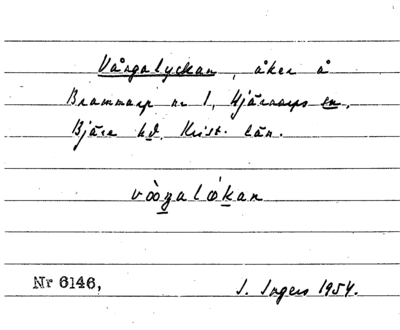 Vångalyckan, åker å
Brammarp nr 1, Hjärnarps sn.
Bjäre hd. Krist. län.
vòŋalókan
Nr 6146,
I. Ingers 1954.